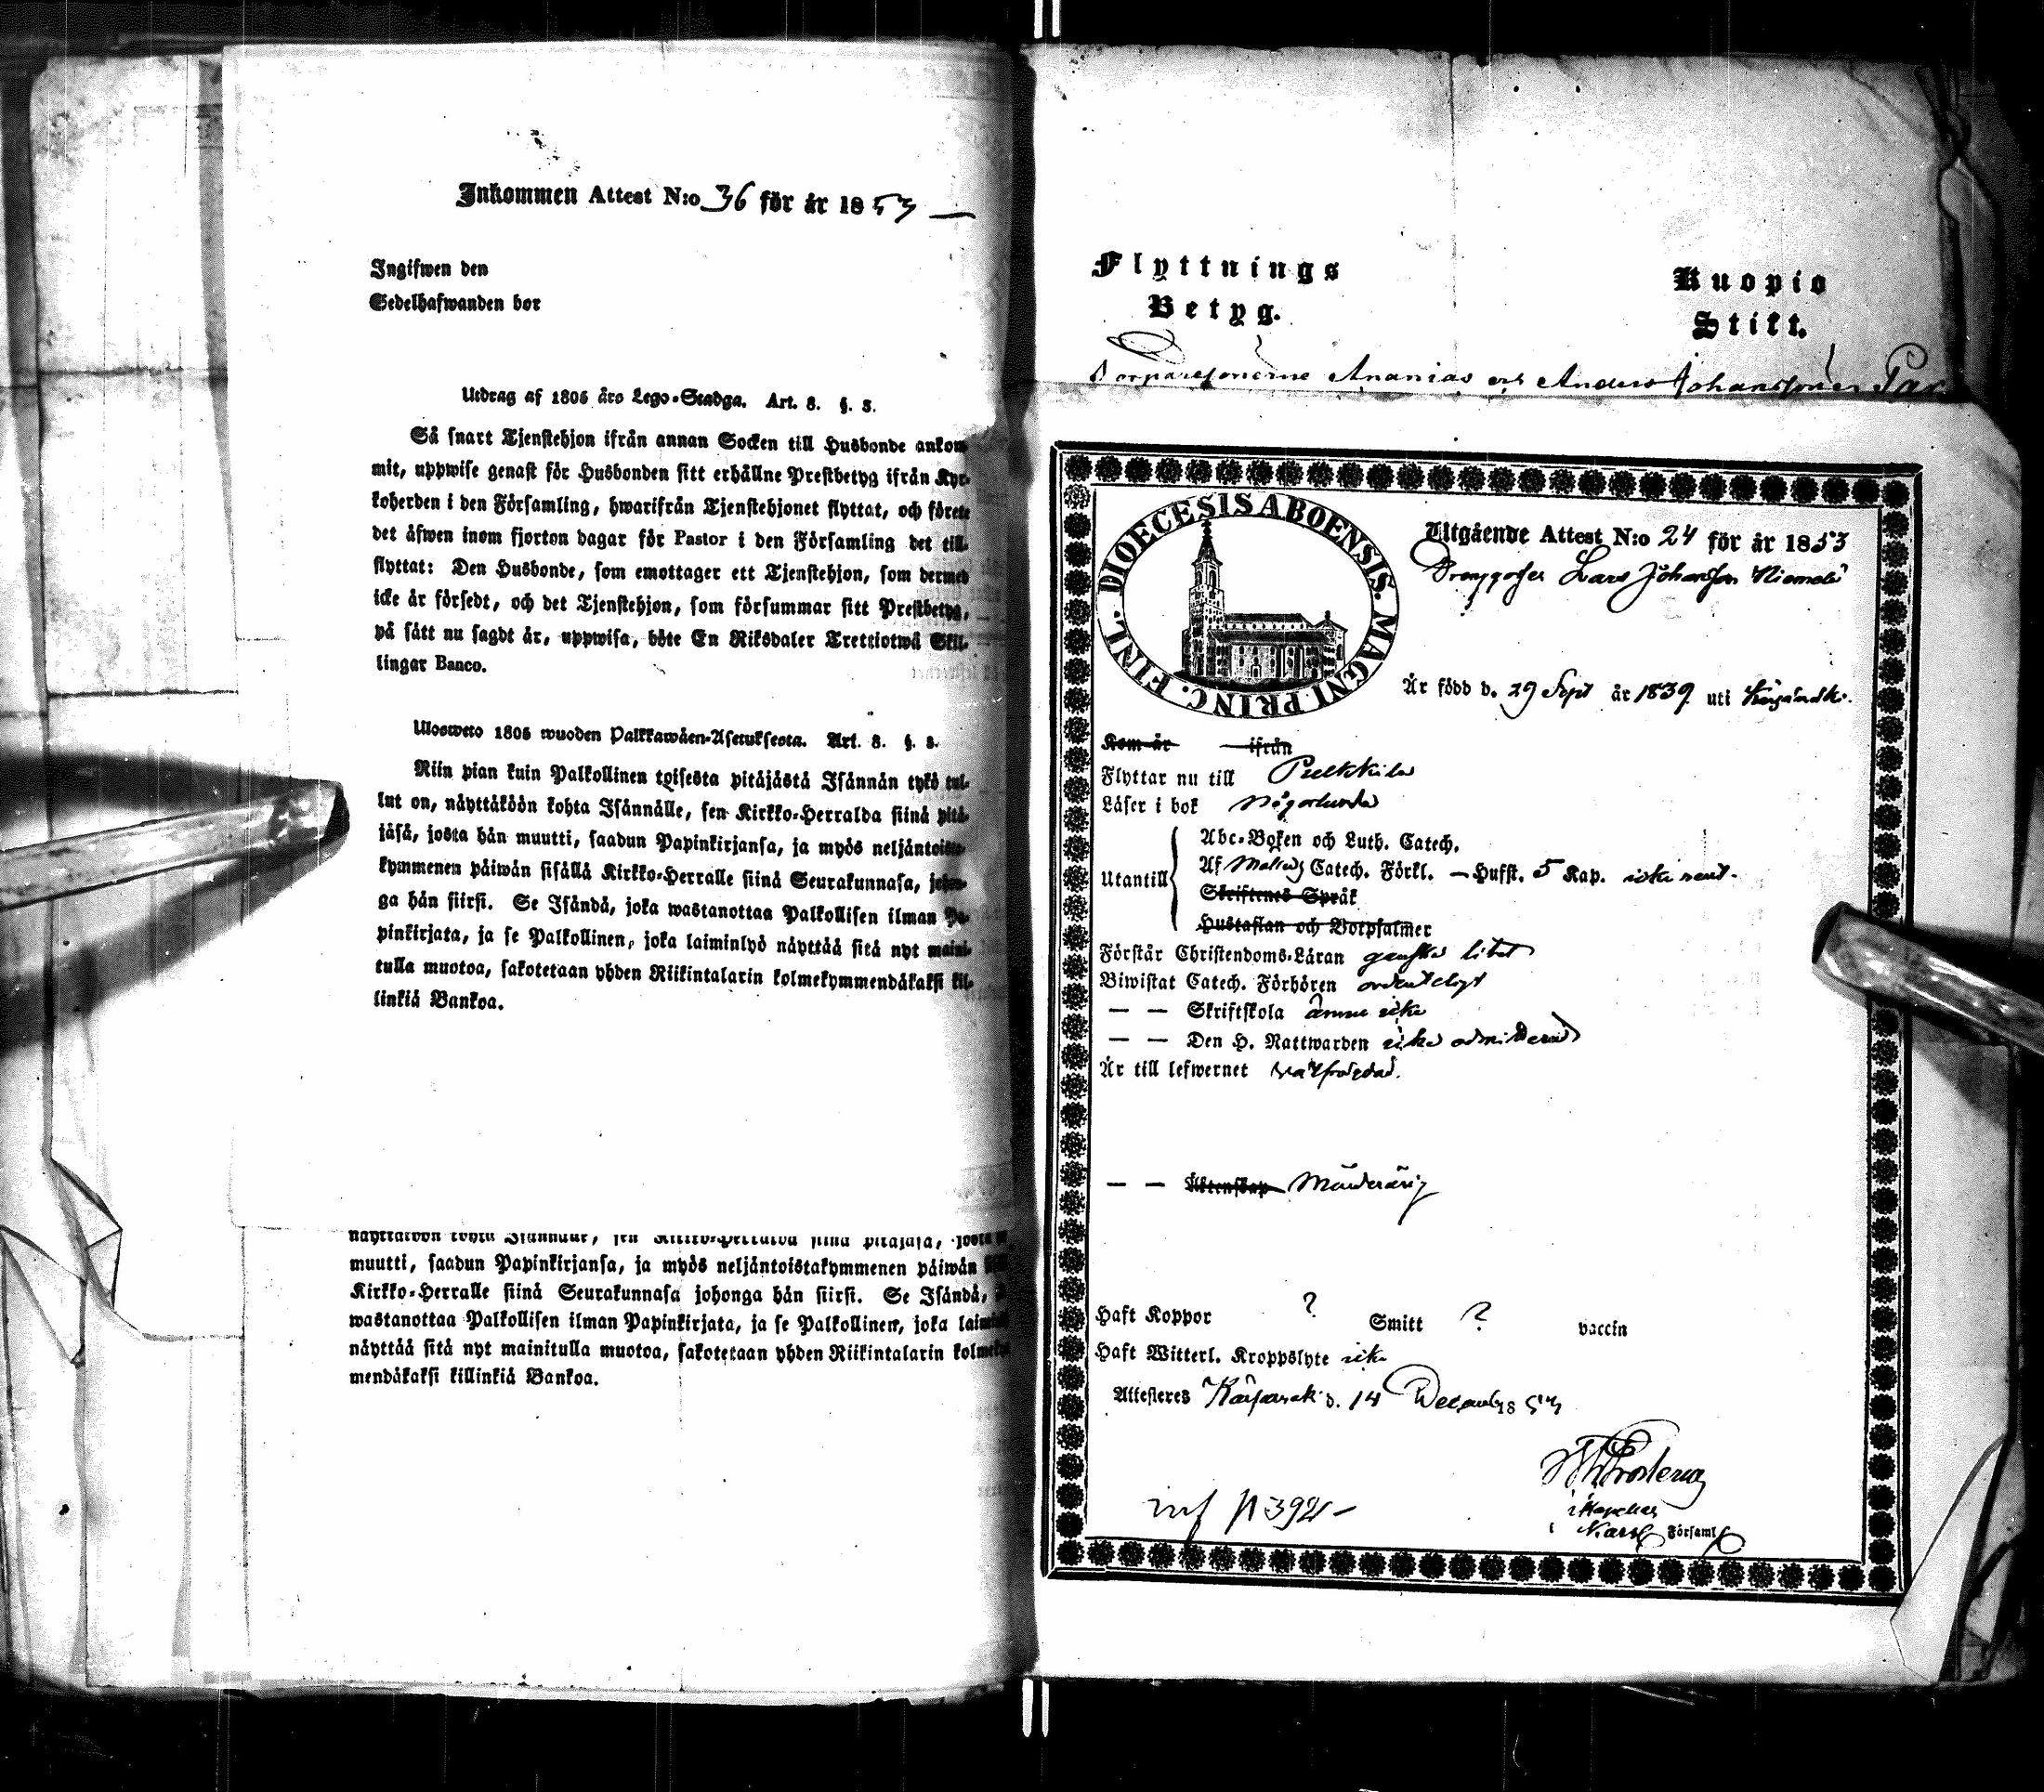 Inkommen Attest N:o 36 för år 1853
Ingifwen den
Sedelhafwanden bor
Utdrag af 1805 års Lego-Stadga. Art. 8. §. 3.
Så snart Tjenstehjon ifrån annan Socken till Husbonde ankom-
mit, uppwise genast för Husbonden sitt erhållne Prestbetyg ifrån Kyr-
koherden i den Församling, hwarifrån Tjenstehjonet flyttat, och förete
det äfwen inom fjorton dagar för Pastor i den Församling det till-
flyttat: Den Husbonde, som emottager ett Tjenstehjon, som dermed
icke är försedt, och det Tjenstehjon, som försummar sitt Prestbetyg,
på sätt nu sagdt är, uppwisa, böte En Riksdaler Trettiotwå Skil-
lingar Banco.
Ulosweto 1805 wuoden Palkkawäen-Asetuksesta. Art. 8. §. 3.
Niin pian kuin Palkollinen toisesta pitäjästä Isännän tykö tul-
lut on, näyttäköön kohta Isännälle, sen Kirkko-Herralda siinä pitä-
jäsä, josta hän muutti, saadun Papinkirjansa, ja myös neljäntoista-
kymmenen päiwän sisällä Kirkko-Herralle siinä Seurakunnasa, johon-
ga hän siirsi. Se Isändä, joka wastanottaa Palkollisen ilman Pa-
pinkirjata, ja se Palkollinen, joka laiminlyö näyttää sitä nyt maini-
tulla muotoa, sakotetaan yhden Riikintalarin kolmekymmendäkaksi kil-
linkiä Bankoa.
näyttäköön kohta Isännälle, sen Kirkko-Herralda siinä pitäjäsä, josta
muutti, saadun Papinkirjansa, ja myös neljäntoistakymmenen päiwän
Kirkko-Herralle siinä Seurakunnasa johonga hän siirsi. Se Isändä,
wastanottaa Palkollisen ilman Papinkirjata, ja se Palkollinen, joka
näyttää sitä nyt mainitulla muotoa, sakotetaan yhden Riikintalarin kolmeky
mendäkaksi killinkiä Bankoa.
Flyttnings
Betyg.
Kuopio
Stift.
Ananias och Anders Johanssöner
DIOECESIS ABOENSIS. MAGNI PRINC. FINL.
Utgående Attest N:o 24 för år 1853
Drenggosse Lars Johansson Niemelä
Är född d. 29 Sept år 1839 uti
Kom år ifrån
Flyttar nu till Pulkkila
Läser i bok någorlunda
Utantill
Abc-Boken och Luth. Catech.
Af Catech. Förkl. — Hufst. 5 Kap. icke rent.
Skriftenes Språk
Hustaflan och Botpsalmer
Förstår Christendoms-Läran ganska litet
Biwistat Catech. Förhören ordentligt
— — Skriftskola ännu icke
— — Den H. Nattwarden icke admitterad
Är till lefwernet välfrägdad.
— — Äktenskap Minderårig
Haft Koppor ? Smitt ? vaccin
Haft Witterl. Kroppslyte icke
Attesteres d. 14 December 1853
inf p 392 -
i Församl